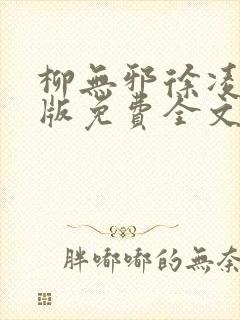 柳無邪徐凌
版免費全文
胖嘟嘟的無奈